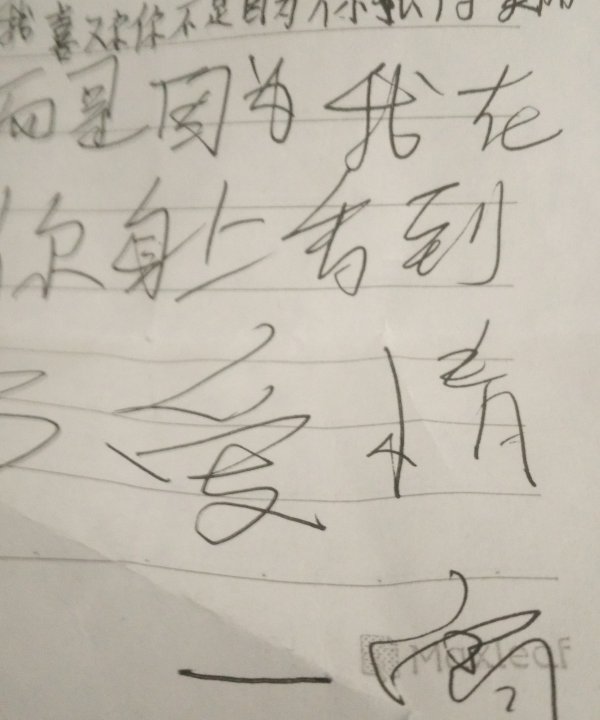 我喜欢你不是因为你
而是因为我在
你身上看到
了爱情
一
Maxleaf